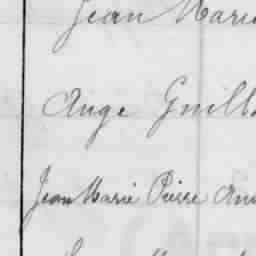 Jean Marie
Ange Guill
Jean Marie Pierre Ann